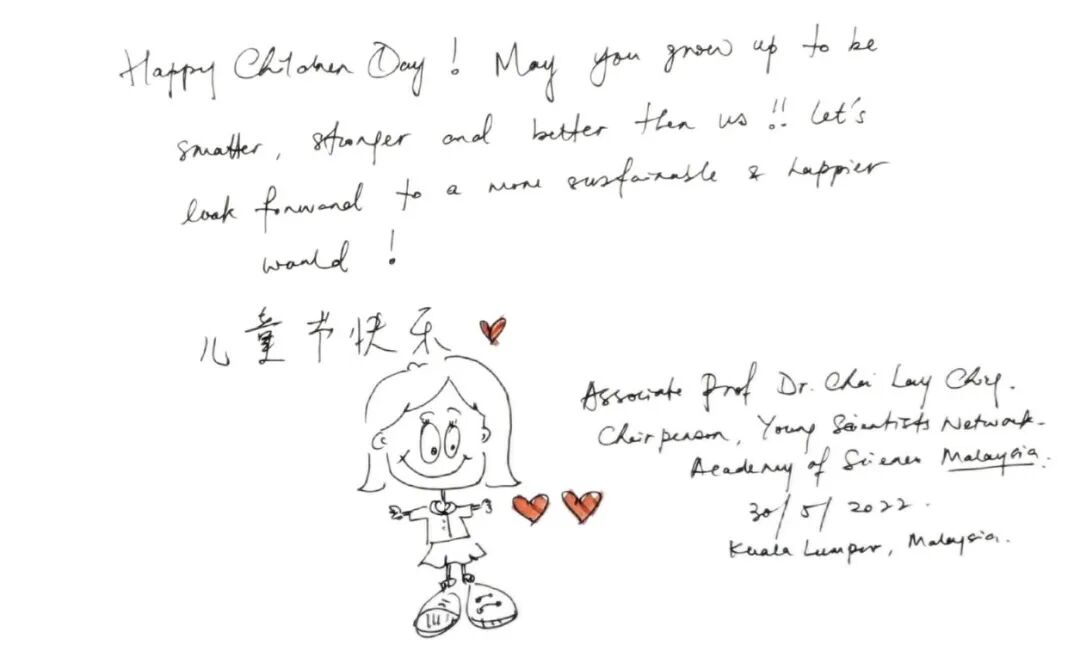 Happy Children Day! May you grow up to be
smatter, stronger and better then us!! Let's
look forward to a more sustainable & happier
world!
儿童节快乐
Associate Prof Dr. Chai Lay Ching.
Chairperson, Young Scientists Network-
Academy of Sciences Malaysia.
30/5/2022.
Kuala Lumpur, Malaysia.